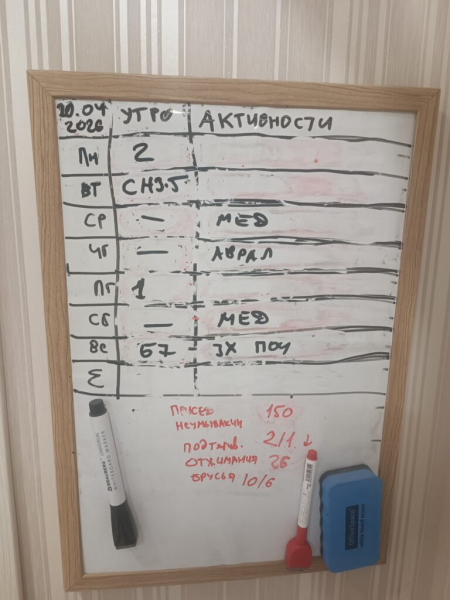 20.04 УТРО АКТИВНОСТИ
2026
ПН 2
ВТ СН3.5
СР — МЕД
ЧТ — АВРАЛ
ПТ 1
СБ — МЕД
ВС Б7 - 3Х ПОЧ
Σ
ПРИСЕД 150
ПОДТЯГИВ. 2/1 ↓
ОТЖИМАНИЯ 26
БРУСЬЯ 10/6